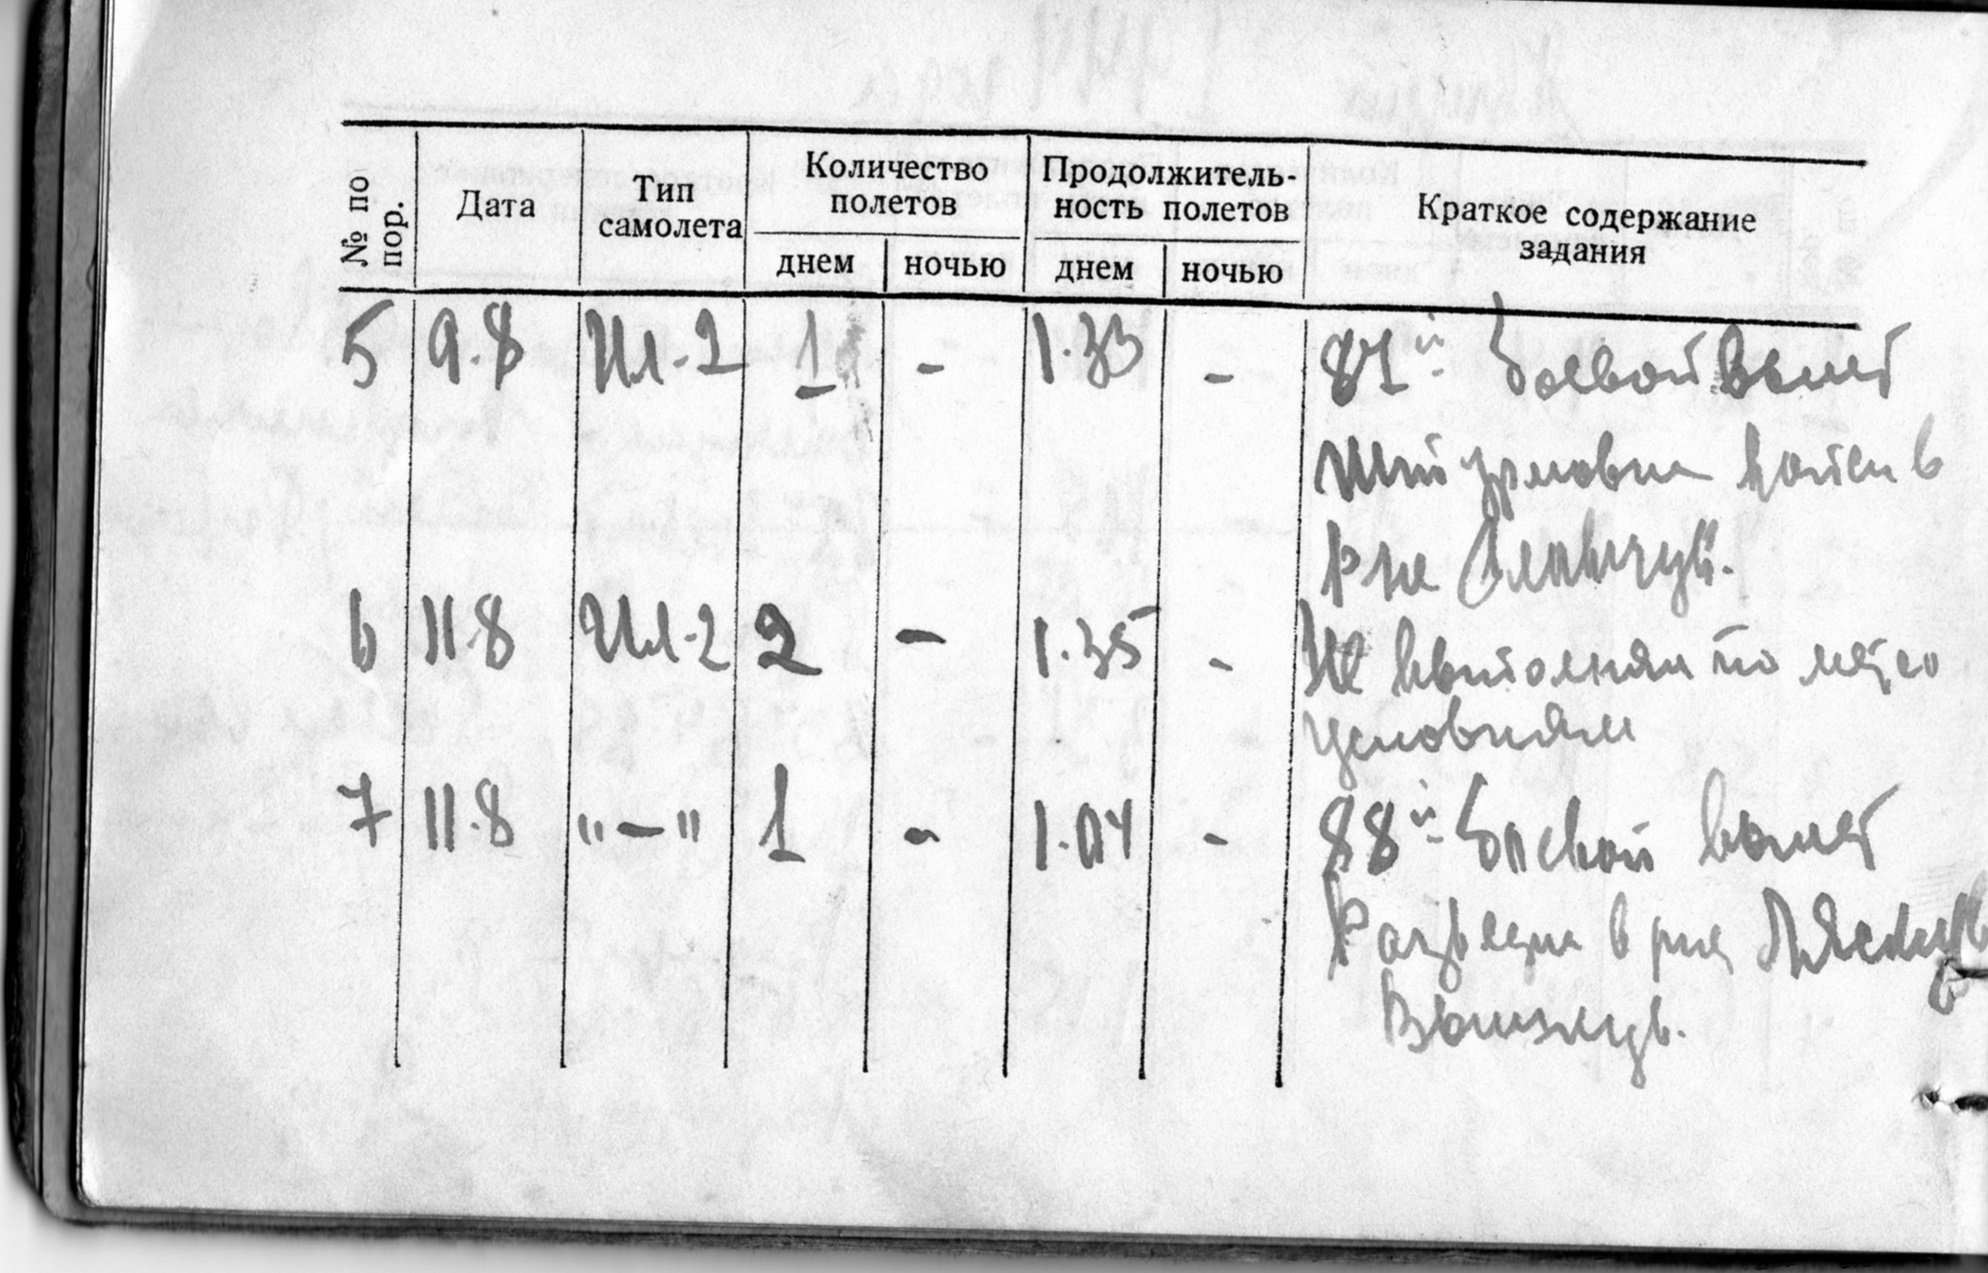 № по пор. Дата Тип самолета Количество полетов Продолжитель-ность полетов Краткое содержание задания
днем ночью днем ночью
5 9.8 Ил-2 1 - 1.33 - 87й боевой вылет
Штурмовка в
р-не
6 11.8 Ил-2 2 - 1.35 - Не выполнял по метео
условиям
7 11.8 "—" 1 - 1.04 - 88й боевой вылет
Разведка в р-не